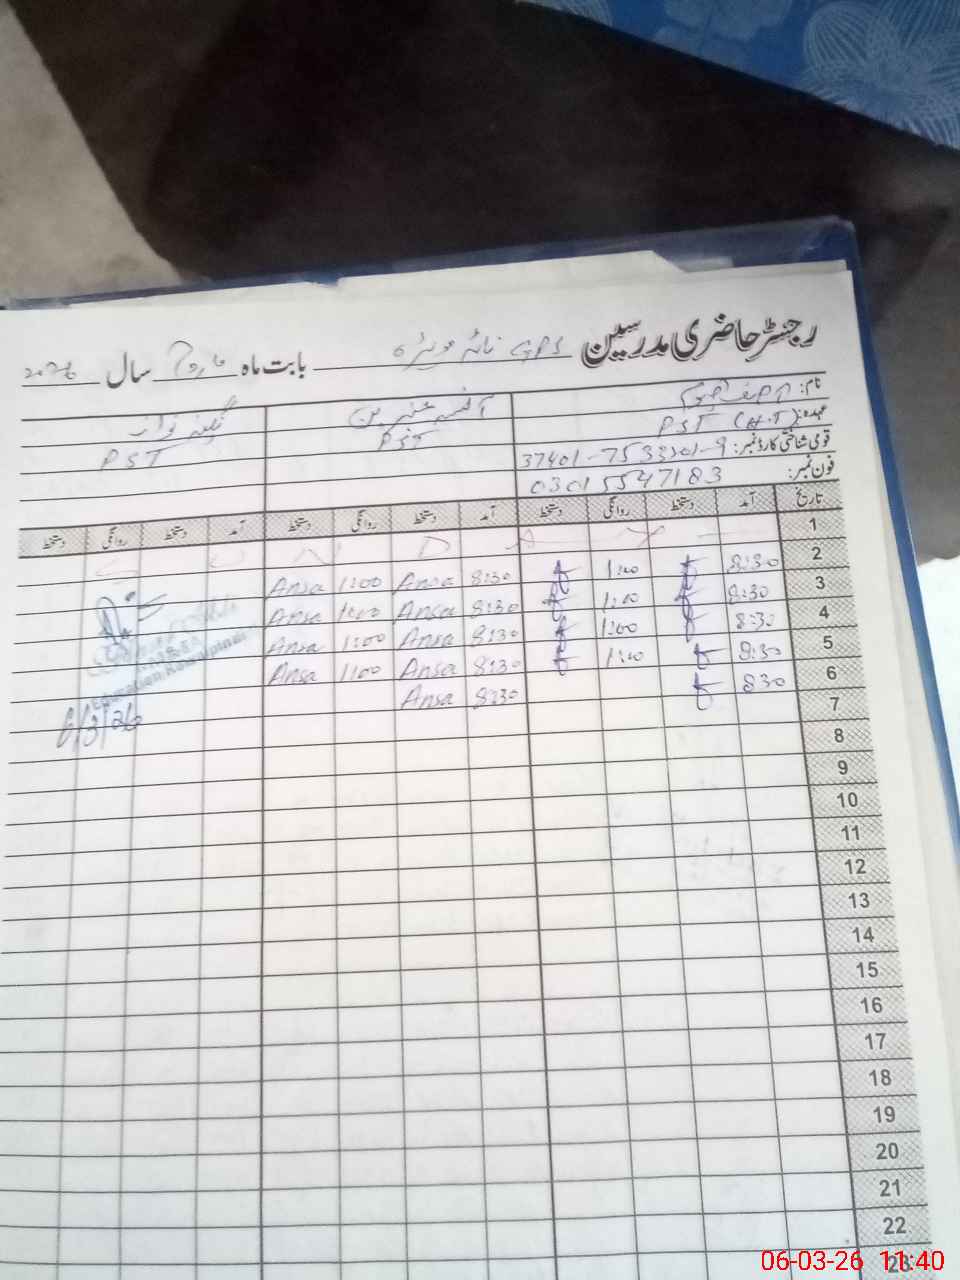 رجسٹر حاضری مدرسین GPS بابت ماہ مارچ سال 2026
نام:
عہدہ: PST (H.T) PST PST
قومی شناختی کارڈ نمبر: 37401-7533301-9
فون نمبر: 03015547183
تاریخ آمد دستخط روانگی دستخط آمد دستخط روانگی دستخط آمد دستخط روانگی دستخط
1
2 8:30 1:00 8:30 Ansa 1:00 Ansa
3 8:30 1:00 8:30 Ansa 1:00 Ansa
4 8:30 1:00 8:30 Ansa 1:00 Ansa
5 8:30 1:00 8:30 Ansa 1:00 Ansa
6 8:30 8:30 Ansa
Education Rawalpindi
6/3/26
7
8
9
10
11
12
13
14
15
16
17
18
19
20
21
22
23
06-03-26 11:40